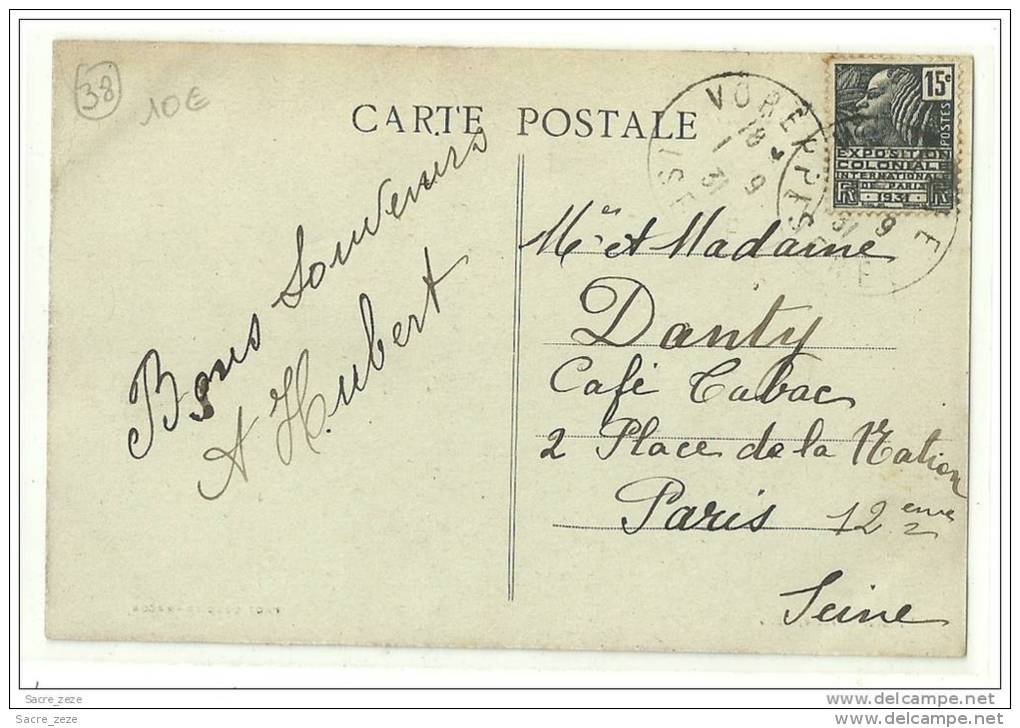 38
10€
CARTE POSTALE
15c
POSTES
EXPOSITION
COLONIALE
INTERNATIONALE
DE PARIS
1931
VOREPPE
18
1 9
31
ISERE
Bons Souvenirs
A Hubert
Mr et Madame
Danty
Café Tabac
2 Place de la Nation
Paris 12eme
Seine
Sacre_zeze
Sacre_zeze
www.delcampe.net
www.delcampe.net